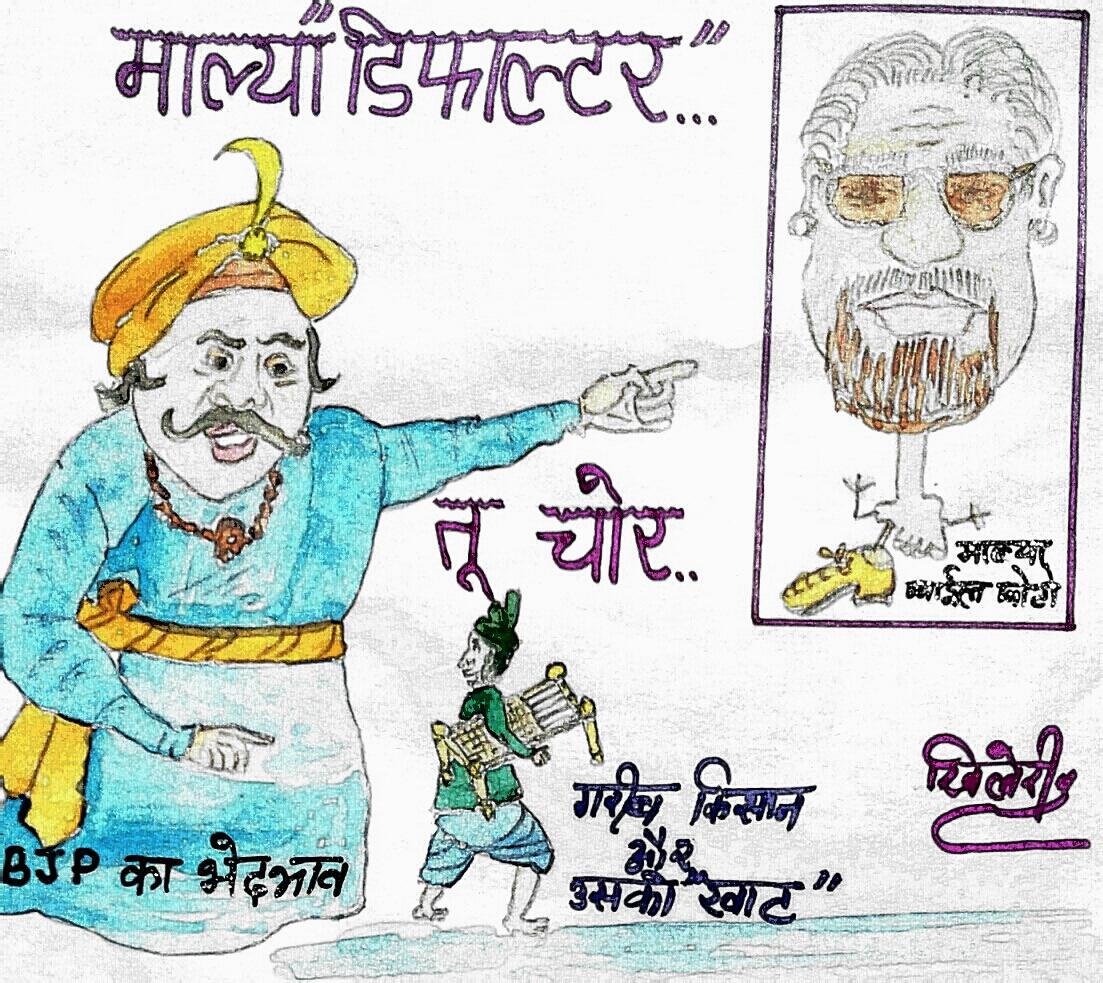 माल्या "डिफाल्टर"...
तू चोर..
माल्या
फाईल फोटो
गरीब किसान
और
उसकी "खाट"
BJP का भेदभाव
खिलेरी